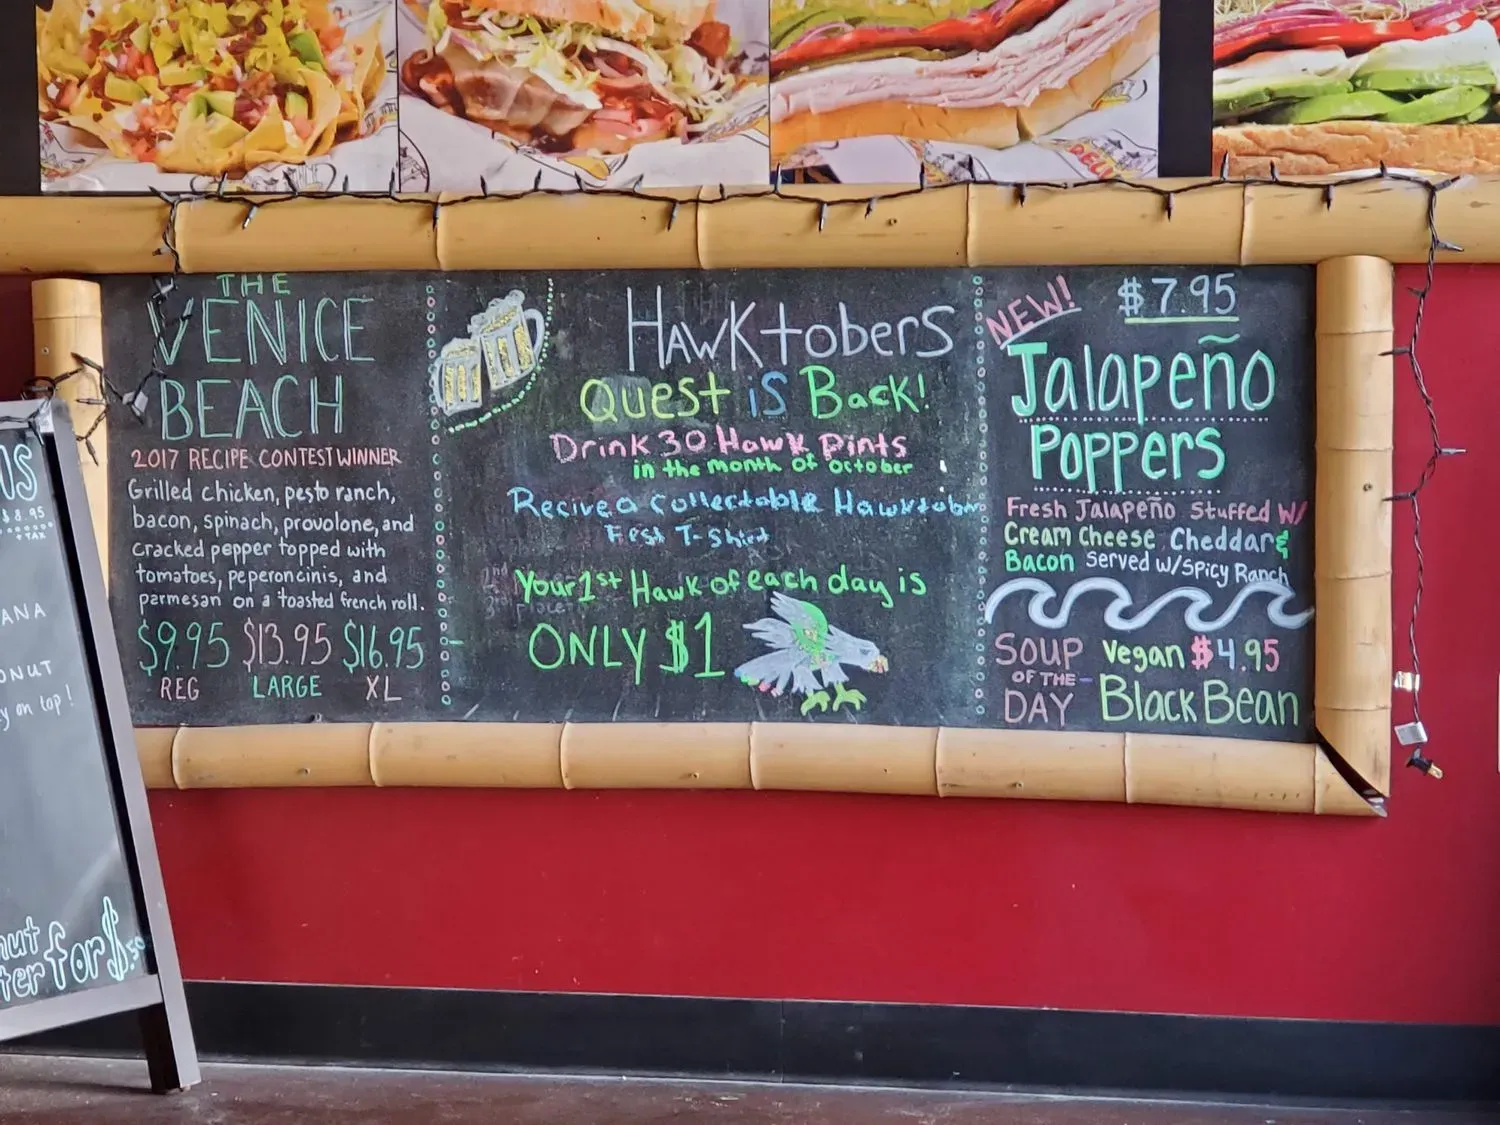 THE
VENICE
BEACH
2017 RECIPE CONTEST WINNER
Grilled chicken, pesto ranch,
bacon, spinach, provolone, and
cracked pepper topped with
tomatoes, peperoncinis, and
parmesan on a toasted french roll.
$9.95 $13.95 $16.95
REG LARGE XL
HAWKtobers
QUEST iS BACK!
Drink 30 Hawk Pints
in the month of october
Recive a collectable Hawktober
Fest T-Shirt
Your 1st Hawk of each day is
ONLY $1
NEW!
$7.95
Jalapeño
Poppers
Fresh Jalapeño Stuffed W/
Cream Cheese Cheddar &
Bacon Served w/Spicy Ranch
SOUP OF THE DAY
Vegan $4.95
Black Bean
$8.95
+ TAX
y on top!
for $.50